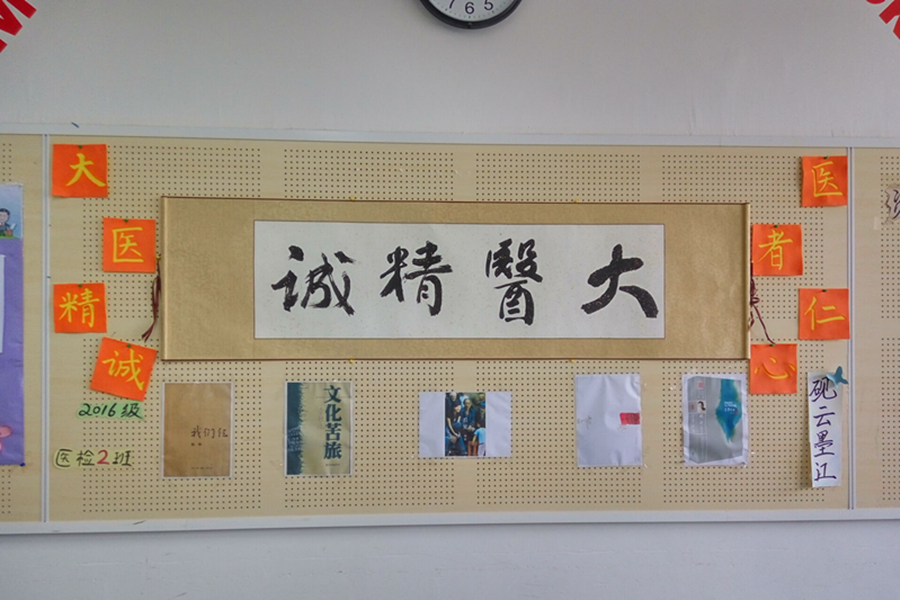 7 6 5
大
医
精
诚
誠精醫大
医
者
仁
心
2016级
医检2班
我们仨
文化苦旅
砚云墨江